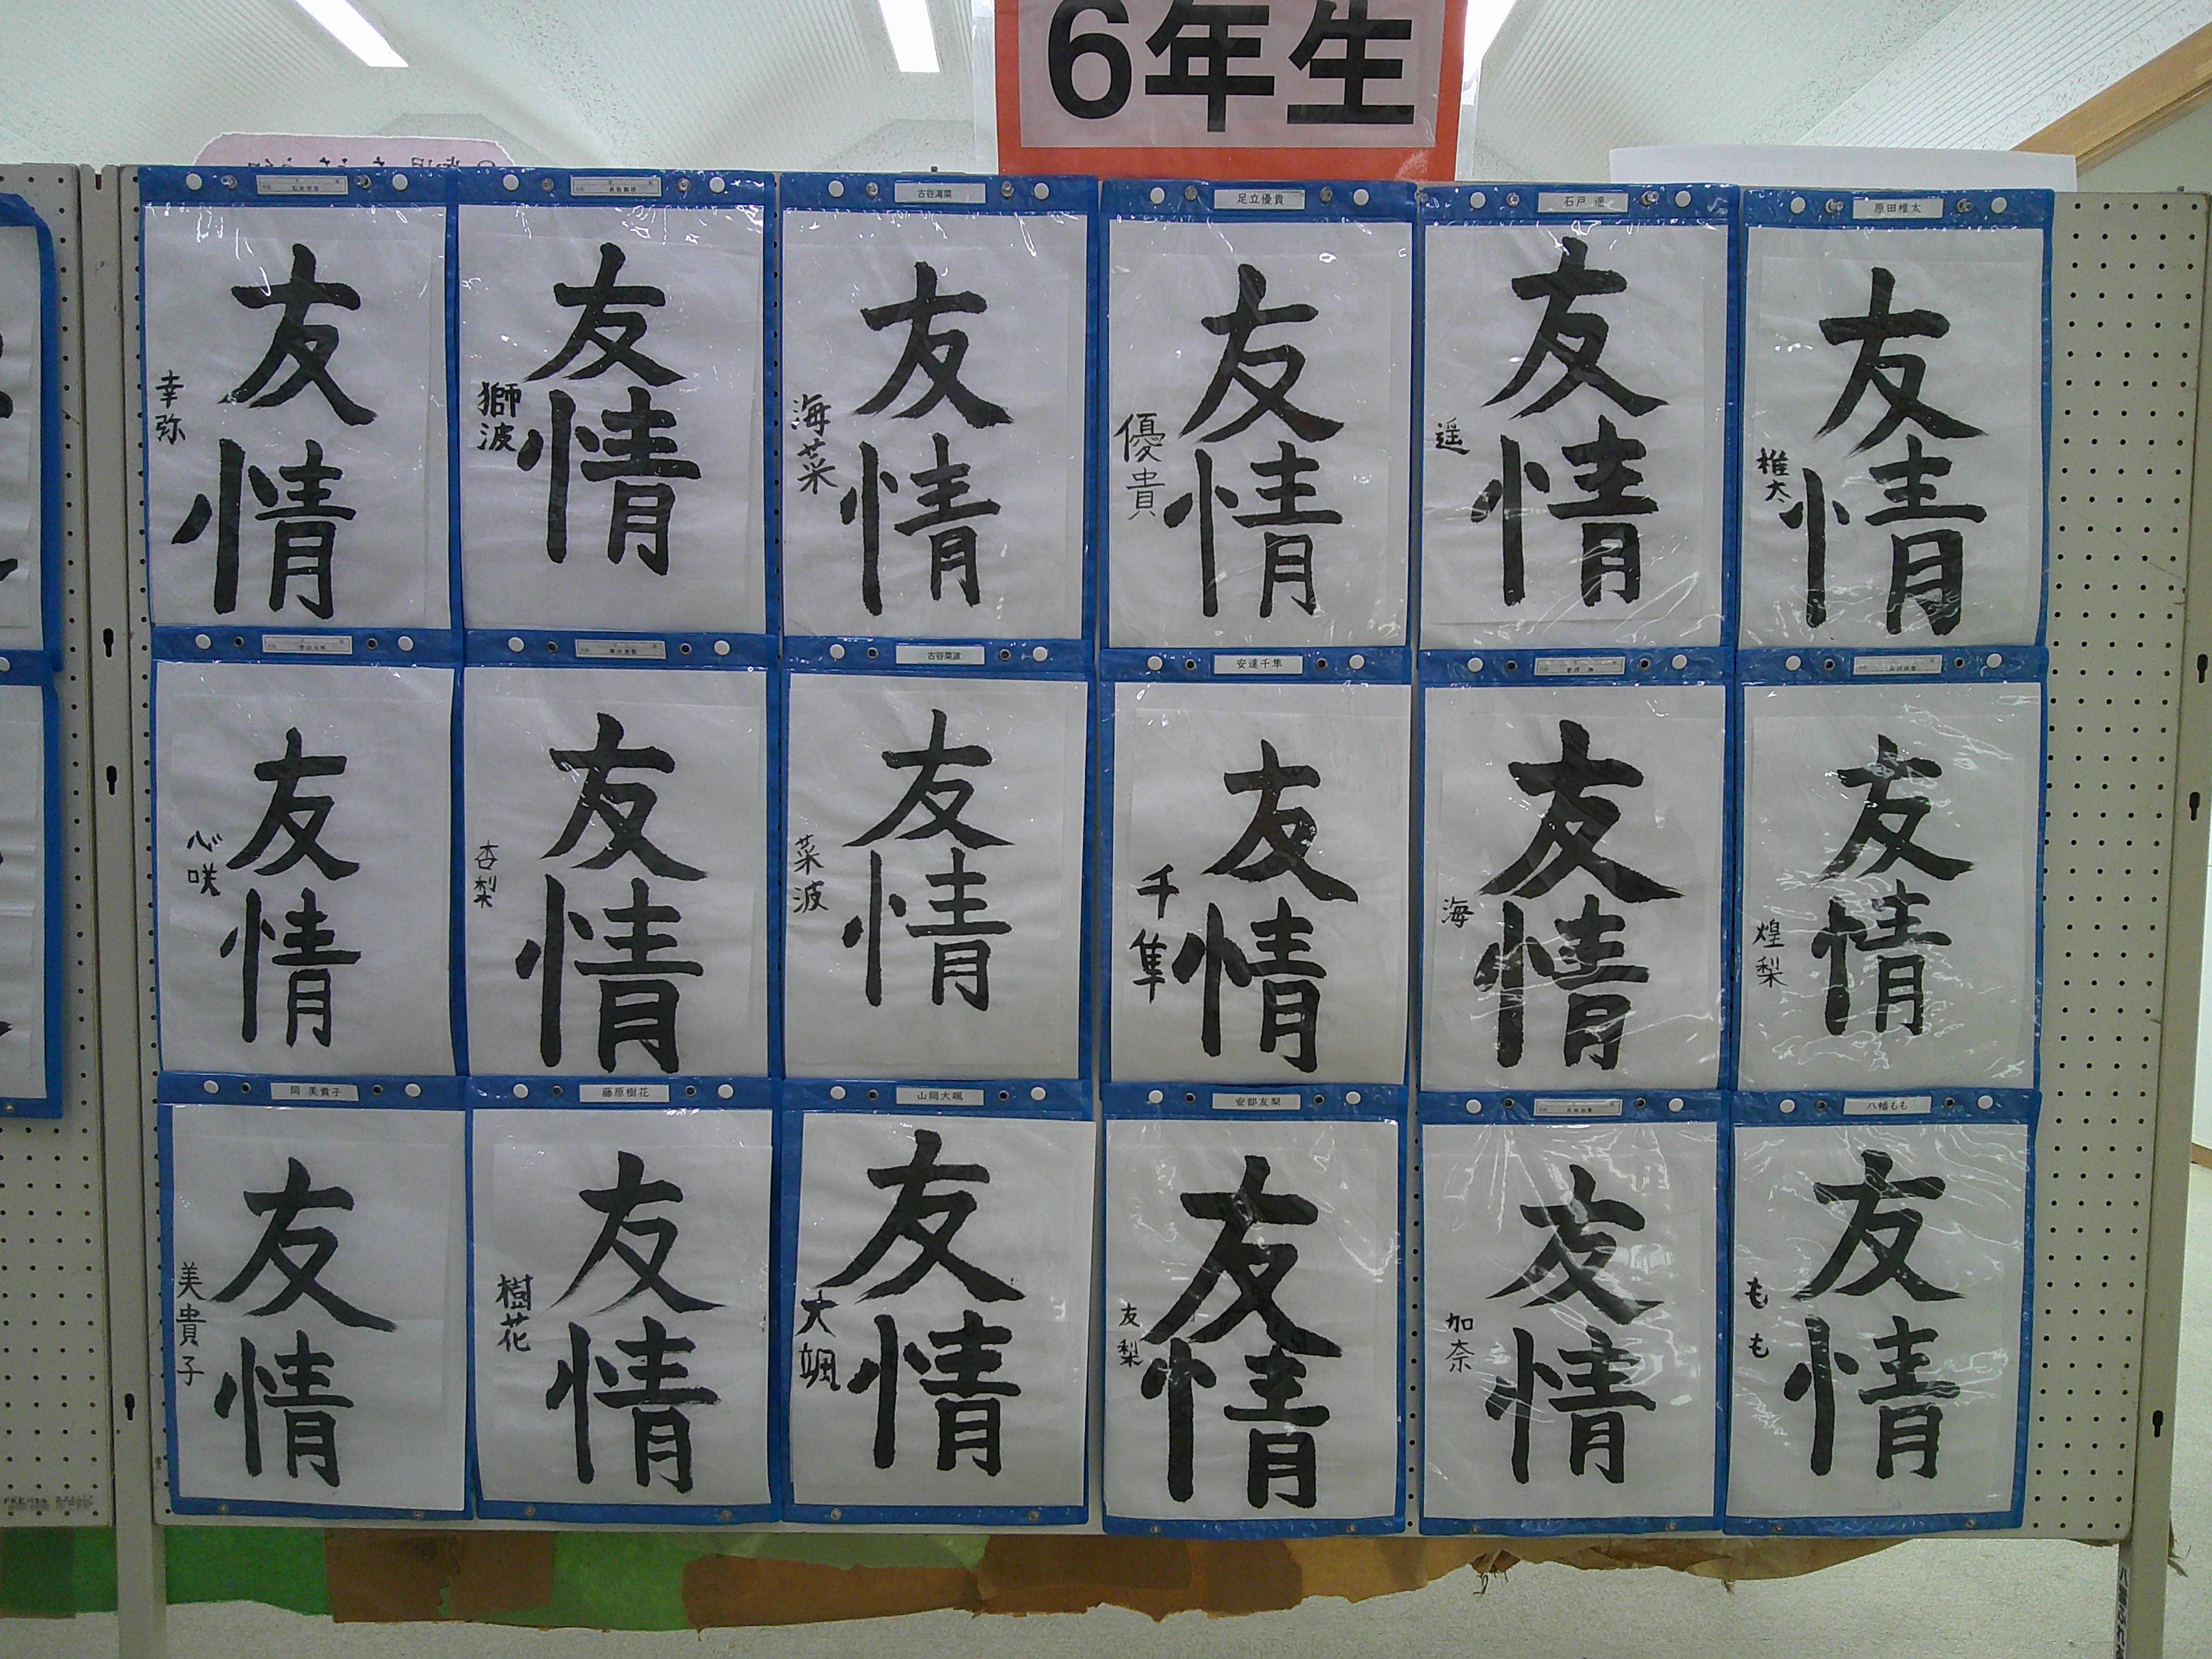 6年生
古谷海菜
足立優貴
石戸 遥
原田椎太
友情
幸弥
友情
獅波
友情
海菜
友情
優貴
友情
遥
友情
椎太
古谷菜波
安達千隼
友情
心咲
友情
杏梨
友情
菜波
友情
千隼
友情
海
友情
煌梨
岡 美貴子
藤原樹花
山岡大颯
安部友梨
八幡もも
友情
美貴子
友情
樹花
友情
大颯
友情
友梨
友情
加奈
友情
もも